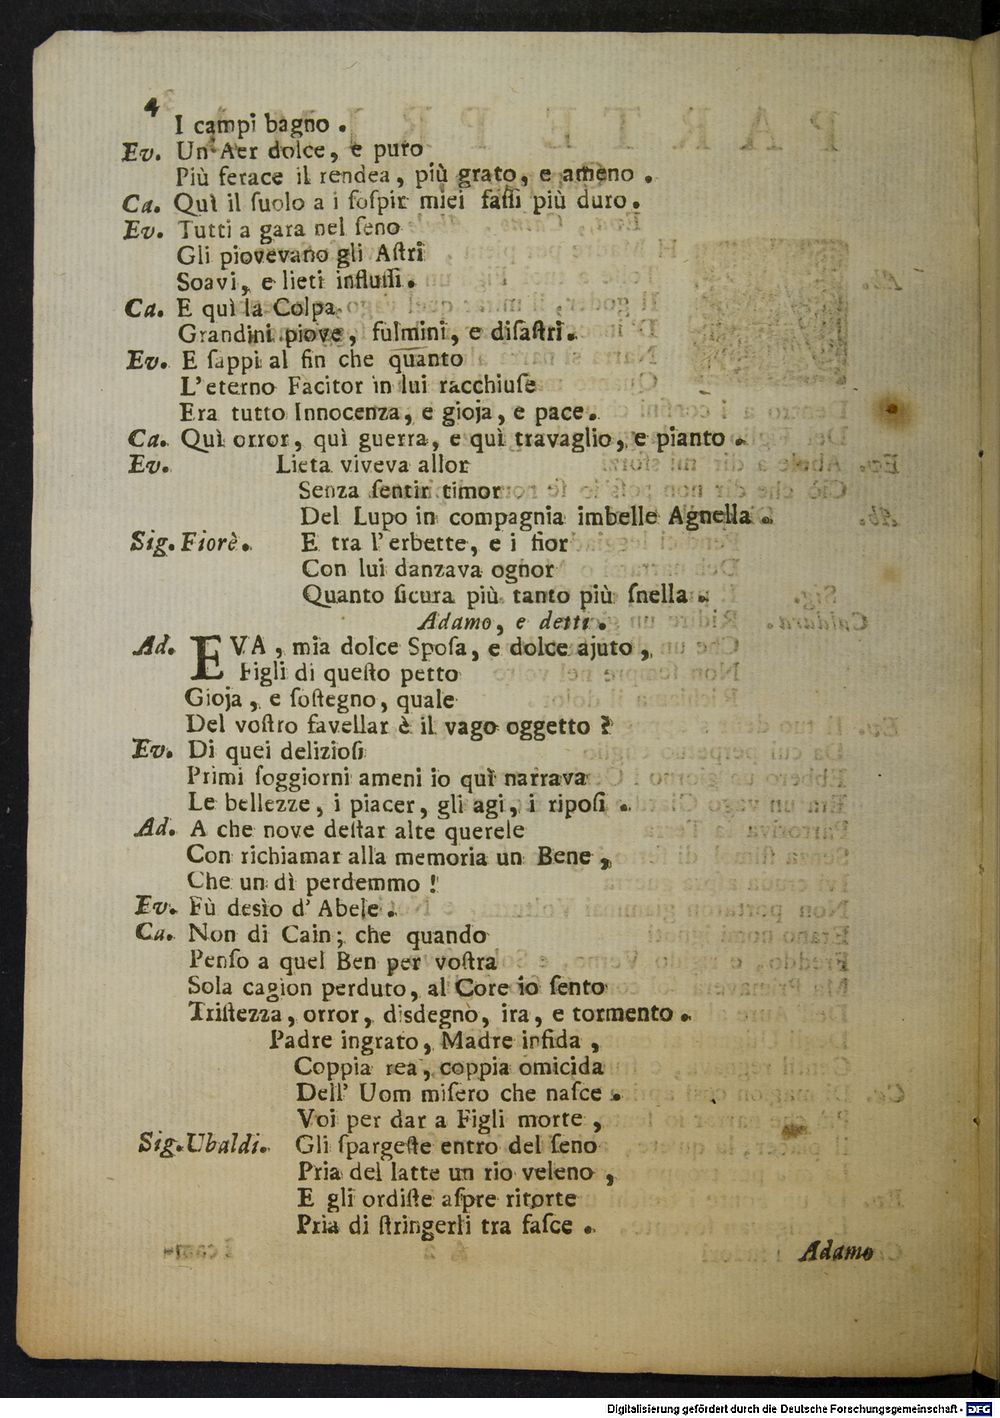 4
I campi bagno .
Ev. Un' Aer dolce, e puro
Più ferace il rendea, più grato, e ameno .
Ca. Quì il ſuolo a i ſoſpir miei faſſi più duro .
Ev. Tutti a gara nel ſeno
Gli piovevano gli Aſtri
Soavi, e lieti influſſi .
Ca. E quì la Colpa
Grandini piove, fulmini, e diſaſtri .
Ev. E ſappi al fin che quanto
L'eterno Facitor in lui racchiuſe
Era tutto Innocenza, e gioja, e pace .
Ca. Quì orror, quì guerra, e quì travaglio, e pianto .
Ev. Lieta viveva allor
Senza ſentir timor
Del Lupo in compagnia imbelle Agnella .
Sig. Fiorè. E tra l'erbette, e i fior
Con lui danzava ognor
Quanto ſicura più tanto più ſnella .
Adamo, e detti .
Ad. EVA, mia dolce Spoſa, e dolce ajuto,
Figli di queſto petto
Gioja, e ſoſtegno, quale
Del voſtro favellar è il vago oggetto ?
Ev. Di quei delizioſi
Primi ſoggiorni ameni io quì narrava
Le bellezze, i piacer, gli agi, i ripoſi .
Ad. A che nove deſtar alte querele
Con richiamar alla memoria un Bene,
Che un dì perdemmo !
Ev. Fù desìo d' Abele .
Ca. Non di Cain; che quando
Penſo a quel Ben per voſtra
Sola cagion perduto, al Core io ſento
Triſtezza, orror, disdegno, ira, e tormento .
Padre ingrato, Madre infida,
Coppia rea, coppia omicida
Dell' Uom miſero che naſce .
Voi per dar a Figli morte,
Sig. Ubaldi. Gli ſpargeſte entro del ſeno
Pria del latte un rio veleno,
E gli ordiſte aſpre ritorte
Pria di ſtringerli tra faſce .
Adamo
Digitalisierung gefördert durch die Deutsche Forschungsgemeinschaft - DFG